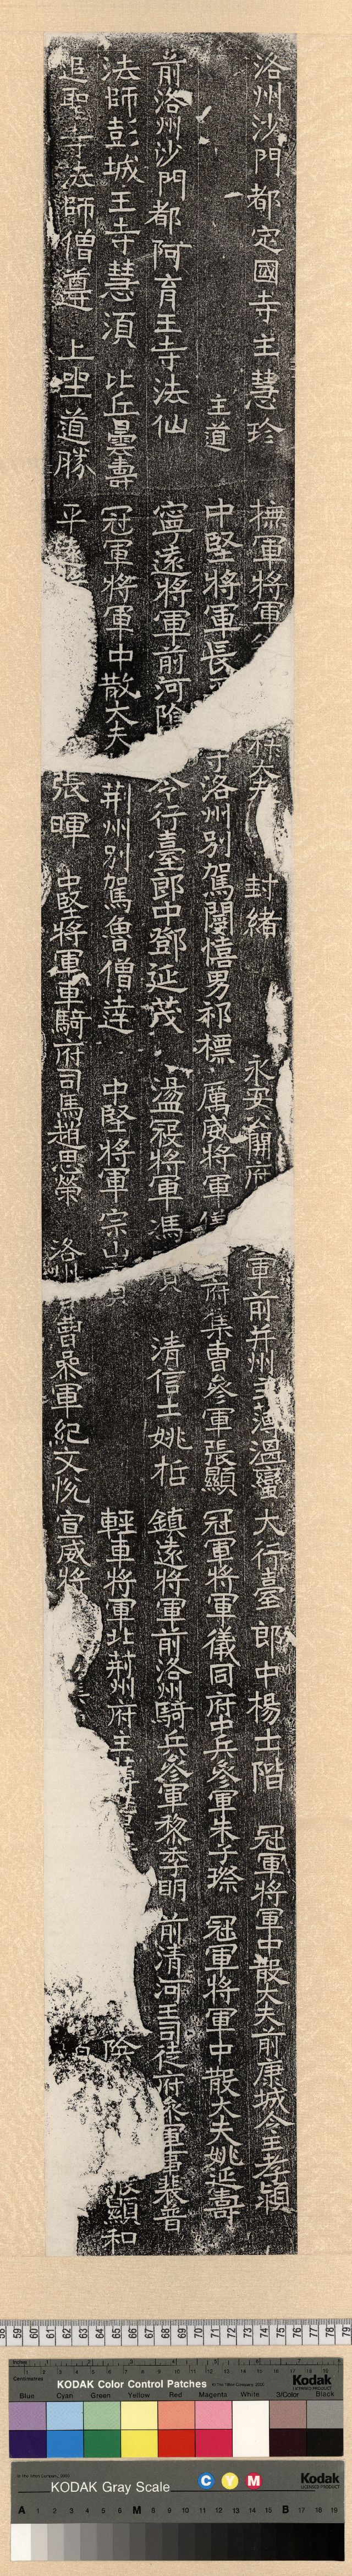 洛州沙門都定國寺主慧珍 撫軍將軍 大夫 封緒 永安公開府 軍前并州主薄溫蠻 大行臺郎中楊士階 冠軍將軍中散大夫前康城令王孝穎
主道 中堅將軍長 守洛州別駕闞僖男祁標 厲威將軍 府集曹參軍張顯 冠軍將軍儀同府中兵參軍朱子琛 冠軍將軍中散大夫姚延壽
前洛州沙門都阿育王寺法仙 寧遠將軍前河陰令行臺郎中鄧延茂 盪寇將軍馮貢 清信士姚哲 鎮遠將軍前洛州騎兵參軍黎季明 前清河王司徒府參軍事裴普
法師彭城王寺慧湏 比丘曇壽 冠軍將軍中散大夫 荊州別駕魯僧達 中堅將軍宗山 輕車將軍北荊州府主簿 除 顯和
追聖寺法師僧遵 上坐道勝 平遠 張暉 中堅將軍車騎府司馬趙思榮 洛州 曹參軍紀文悅 宣威將
58 59 60 61 62 63 64 65 66 67 68 69 70 71 72 73 74 75 76 77 78 79
Inches
Centimetres
KODAK Color Control Patches
Kodak
LICENSED PRODUCT
Blue Cyan Green Yellow Red Magenta White 3/Color Black
KODAK Gray Scale
C Y M
Kodak
LICENSED PRODUCT
A 1 2 3 4 5 6 M 8 9 10 11 12 13 14 15 B 17 18 19